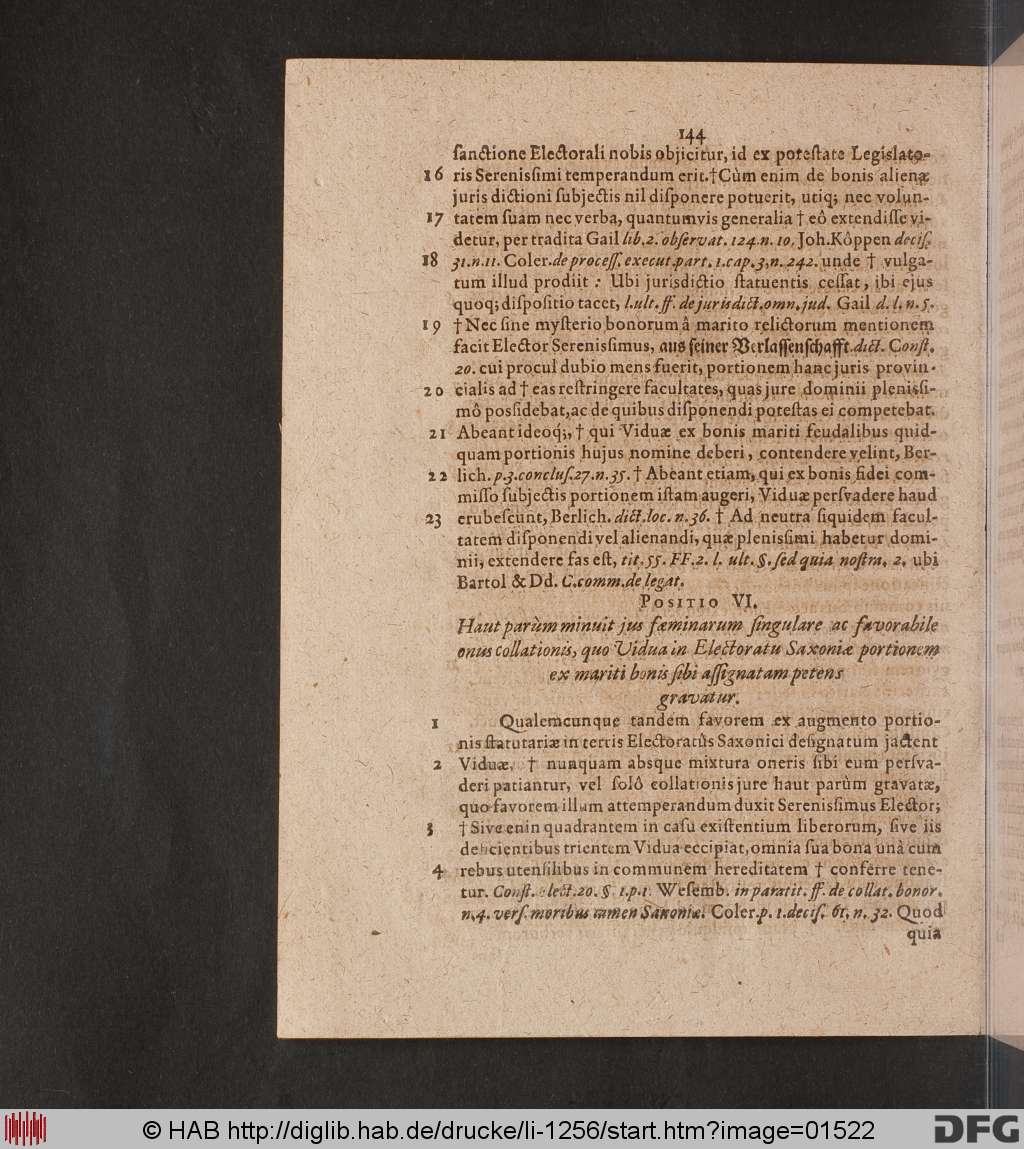 144
sanctione Electorali nobis objicitur, id ex potestate Legislato-
16 ris Serenissimi temperandum erit.†Cùm enim de bonis alienæ
juris dictioni subjectis nil disponere potuerit, utiq; nec volun-
17 tatem suam nec verba, quantumvis generalia † eô extendisse vi-
detur, per tradita Gail lib. 2. observat. 124. n. 10. Joh. Kôppen decis.
18 31. n. 11. Coler. de process. execut. part. 1. cap. 3. n. 242. unde † vulga-
tum illud prodiit : Ubi jurisdictio statuentis cessat, ibi ejus
quoq; dispositio tacet, l. ult. ff. de jurisdict. omn. jud. Gail d. l. n. 5.
19 † Nec sine mysterio bonorum â marito relictorum mentionem
facit Elector Serenissimus, aus seiner Verlassenschafft. dict. Const.
20. cui procul dubio mens fuerit, portionem hanc juris provin-
20 cialis ad † eas restringere facultates, quas jure dominii plenissi-
mô possidebat, ac de quibus disponendi potestas ei competebat.
21 Abeant ideoq;, † qui Viduæ ex bonis mariti feudalibus quid-
quam portionis hujus nomine deberi, contendere velint, Ber-
22 lich. p. 3. conclus. 27. n. 35. † Abeant etiam, qui ex bonis fidei com-
misso subjectis portionem istam augeri, Viduæ persvadere haud
23 erubescunt, Berlich. dict. loc. n. 36. † Ad neutra siquidem facul-
tatem disponendi vel alienandi, quæ plenissimi habetur domi-
nii, extendere fas est, tit. 55. FF. 2. l. ult. §. sed quia nostra. 2. ubi
Bartol & Dd. C. comm. de legat.
POSITIO VI.
Haut parùm minuit jus fæminarum singulare ac favorabile
onus collationis, quo Vidua in Electoratu Saxoniæ portionem
ex mariti bonis sibi assignatam petens
gravatur.
1 Qualemcunque tandem favorem ex augmento portio-
nis statutariæ in terris Electoratûs Saxonici designatum jactent
2 Viduæ, † nunquam absque mixtura oneris sibi eum persva-
deri patiantur, vel solô collationis jure haut parùm gravatæ,
quo favorem illum attemperandum duxit Serenissimus Elector;
3 † Sive enin quadrantem in casu existentium liberorum, sive iis
deficientibus trientem Vidua eccipiat, omnia sua bona unà cum
4 rebus utensilibus in communem hereditatem † conferre tene-
tur. Const. elect. 20. §. 1. p. 1. Wesemb. in paratit. ff. de collat. bonor.
n. 4. vers. moribus tamen Saxoniæ. Coler. p. 1. decis. 61. n. 32. Quod
quia
© HAB http://diglib.hab.de/drucke/li-1256/start.htm?image=01522
DFG